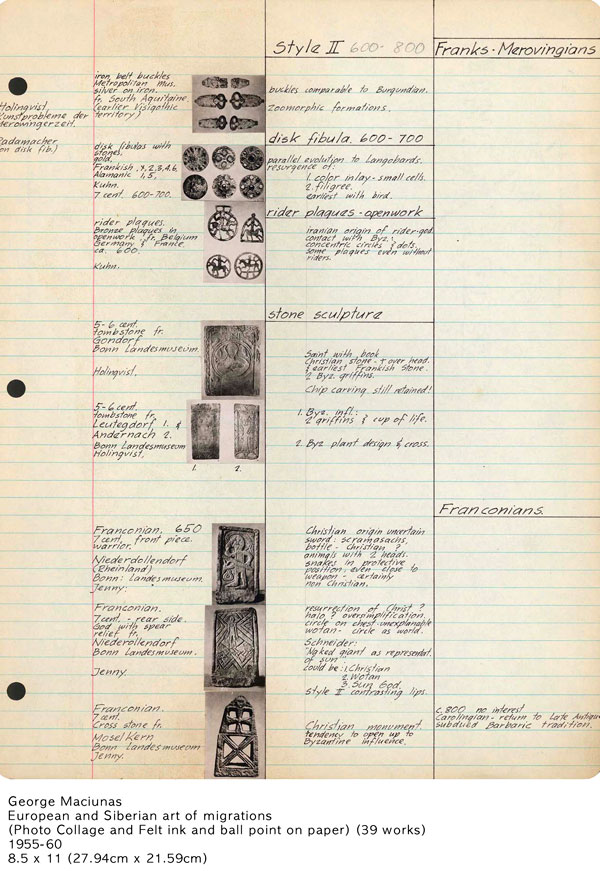 Style II 600-800
Franks - Merovingians
iron belt buckles
Metropolitan Mus.
silver on iron.
fr. South Aquitaine.
(earlier Visigothic
territory)
Holinqvist,
Kunstprobleme der
Merowingerzeit.
Radamacher
(on disk fib.)
buckles comparable to Burgundian.
zoomorphic formations.
disk fibula. 600-700
disk fibulas with
stones.
gold.
Frankish
Alamanic 1, 5,
Kuhn.
7 cent. 600-700.
parallel evolution to Langobards.
resurgence of:
1. color inlay - small cells.
2. filigree.
earliest with bird.
rider plaques - openwork
rider plaques.
Bronze plaques in
openwork. fr. Belgium
Germany & France.
ca. 600.
Kuhn.
iranian origin of rider-god
contact with Byz.!
concentric circles & dots.
some plaques even without
riders.
stone sculpture
5-6 cent.
tombstone fr.
Gondorf
Bonn Landesmuseum.
Holinqvist.
Saint with book
Christian stone - + over head.
& earliest Frankish stone.
2 Byz. griffins.
Chip carving still retained!
5-6 cent.
Tombstone fr.
Leutegdorf 1. &
Andernach 2.
Bonn Landesmuseum
Holinqvist.
1. 2.
1. Byz. infl.:
2 griffins & cup of life.
2. Byz plant design & cross.
Franconians.
Franconian. 650
7 cent. front piece.
warrior.
Niederdollendorf
(Rheinland)
Bonn: Landesmuseum.
Jenny.
Christian origin uncertain
sword: scramasachs,
bottle - Christian ?
animals with 2 heads.
snakes in protective
position, even close to
weapon - certainly
non Christian.
Franconian.
7 cent. - rear side.
God with spear
relief fr.
Niederollendorf
Bonn Landesmuseum.
Jenny.
resurrection of Christ ?
halo ? oversimplification.
circle on chest-unexplainable
wotan - circle as world.
Schneider:
"Naked giant as representat.
of sun"
could be: 1. Christian
2. Wotan
3. Sun God.
style II contrasting lips.
Franconian.
7 cent.
Cross stone fr.
Moselkern
Bonn Landesmuseum
Jenny.
Christian monument.
tendency to open up to
Byzantine influence.
c. 800 no interest
Carolingian - return to Late Antiqu
subdued Barbaric tradition.
George Maciunas
European and Siberian art of migrations
(Photo Collage and Felt ink and ball point on paper) (39 works)
1955-60
8.5 x 11 (27.94cm x 21.59cm)